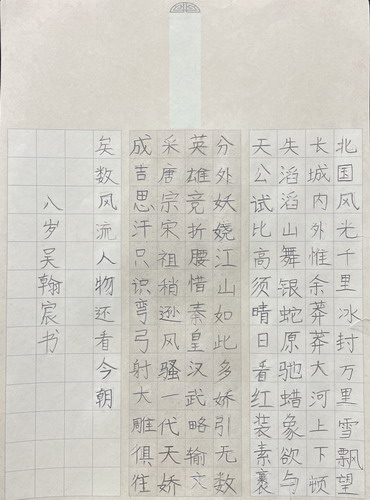 北国风光千里冰封万里雪飘望
长城内外惟余莽莽大河上下顿
失滔滔山舞银蛇原驰蜡象欲与
天公试比高须晴日看红装素裹
分外妖娆江山如此多娇引无数
英雄竞折腰惜秦皇汉武略输文
采唐宗宋祖稍逊风骚一代天娇
成吉思汗只识弯弓射大雕俱往
矣数风流人物还看今朝
八岁吴翰宸书